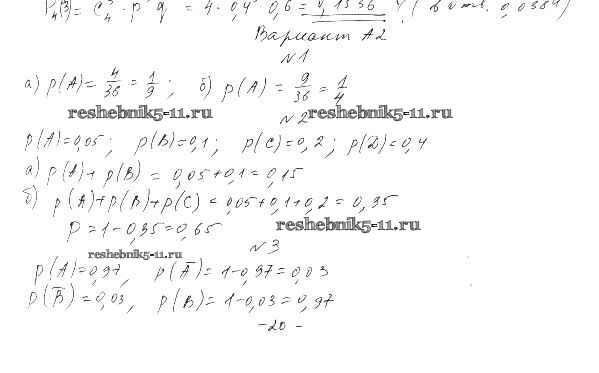 P₄(3) = C₄³ · p³ q = 4 · 0,4³ · 0,6 = 0,1536
Вариант А2
№1
а) p(A) = 4/36 = 1/9 ; б) p(A) = 9/36 = 1/4
reshebnik5-11.ru reshebnik5-11.ru
№2
p(A)=0,05; p(B)=0,1; p(C)=0,2; p(D)=0,4
а) p(A)+p(B) = 0,05+0,1=0,15
б) p(A)+p(B)+p(C) = 0,05+0,1+0,2=0,35
p=1-0,35=0,65
reshebnik5-11.ru
№3
reshebnik5-11.ru
p(A)=0,97, p(A̅)=1-0,97=0,03
p(B̅)=0,03, p(B)=1-0,03=0,97
-20-